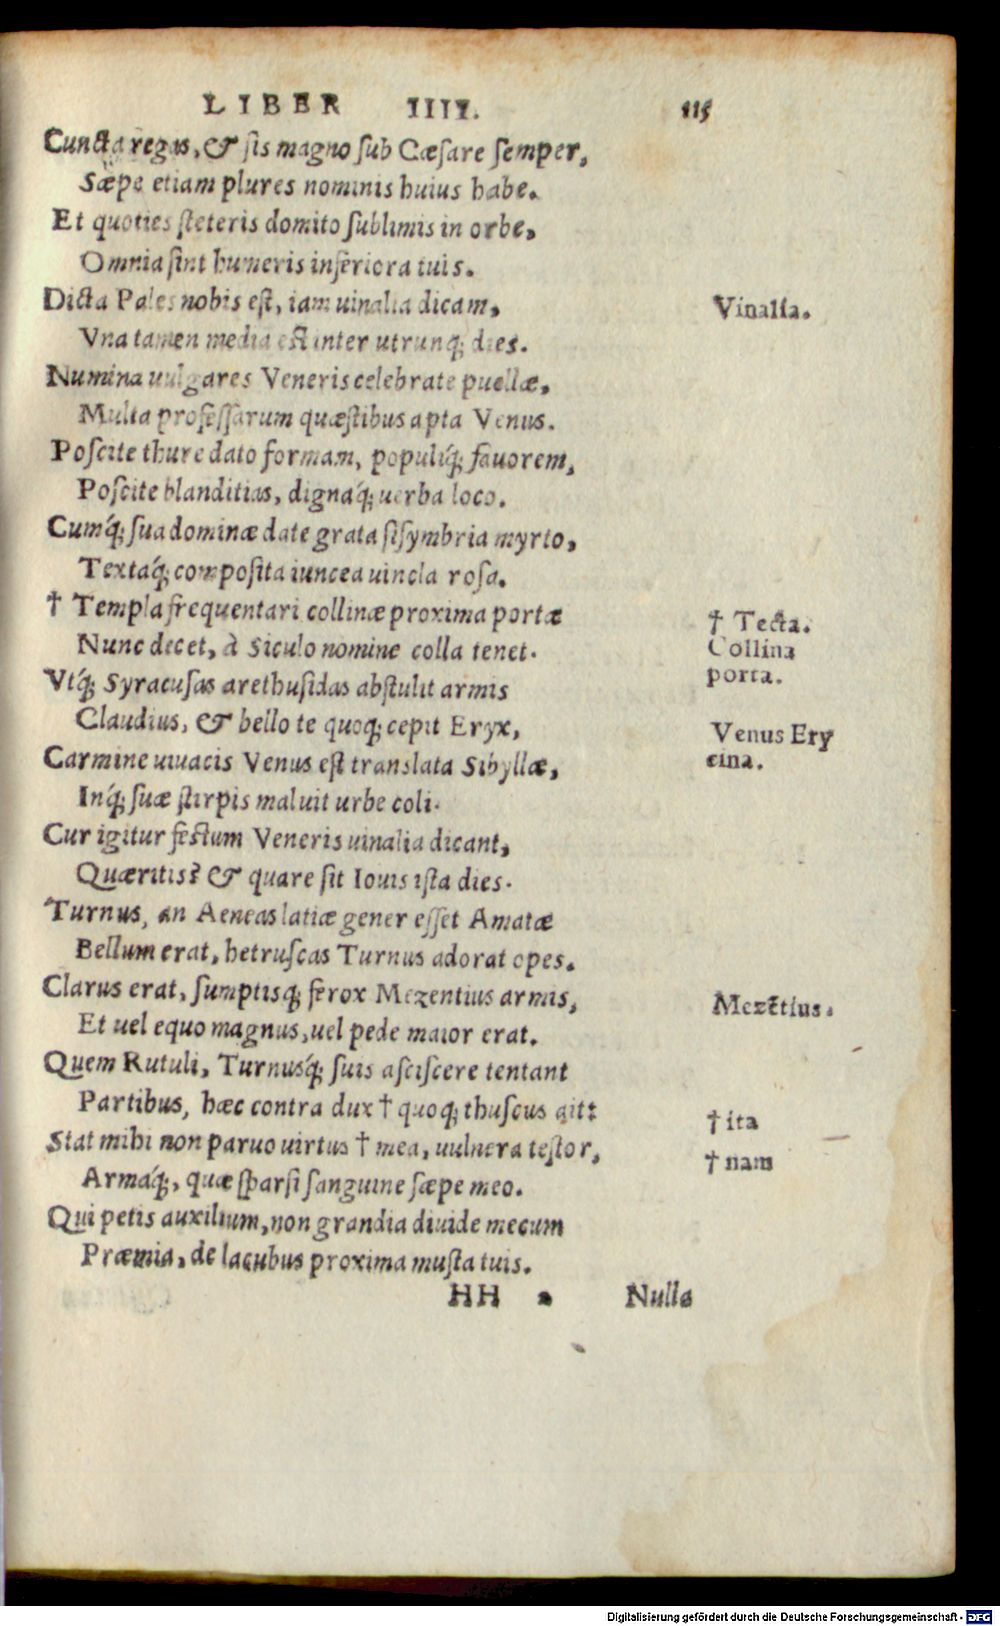 LIBER IIII. 115
Cuncta regas, & sis magno sub Cæsare semper,
Sæpe etiam plures nominis huius habe.
Et quoties steteris domito sublimis in orbe,
Omnia sint humeris inferiora tuis.
Dicta Pales nobis est, iam uinalia dicam, Vinalia.
Vna tamen media est inter utrunq; dies.
Numina uulgares Veneris celebrate puellæ,
Multa professarum quæstibus apta Venus.
Poscite thure dato formam, populíq; fauorem,
Poscite blanditias, dignáq; uerba loco.
Cumq́; sua dominæ date grata sisymbria myrto,
Textáq; composita iuncea uincla rosa.
† Templa frequentari collinæ proxima portæ † Tecta.
Nunc decet, à Siculo nomine colla tenet. Collina
Vtq́; Syracusas arethusidas abstulit armis porta.
Claudius, & bello te quoq; cepit Eryx, Venus Ery
Carmine uiuacis Venus est translata Sibyllæ, cina.
Inq́; suæ stirpis maluit urbe coli.
Cur igitur festum Veneris uinalia dicant,
Quæritis? & quare sit Iouis ista dies.
Turnus, an Aeneas latiæ gener esset Amatæ
Bellum erat, hetruscas Turnus adorat opes.
Clarus erat, sumptisq; ferox Mezentius armis, Mezẽtius.
Et uel equo magnus, uel pede maior erat.
Quem Rutuli, Turnusq́; suis asciscere tentant
Partibus, hæc contra dux † quoq; thuscus ait: † ita
Stat mihi non paruo uirtus † mea, uulnera testor, † nam
Armáq;, quæ sparsi sanguine sæpe meo.
Qui petis auxilium, non grandia diuide mecum
Præmia, de lacubus proxima musta tuis.
HH Nulla
Digitalisierung gefördert durch die Deutsche Forschungsgemeinschaft - DFG